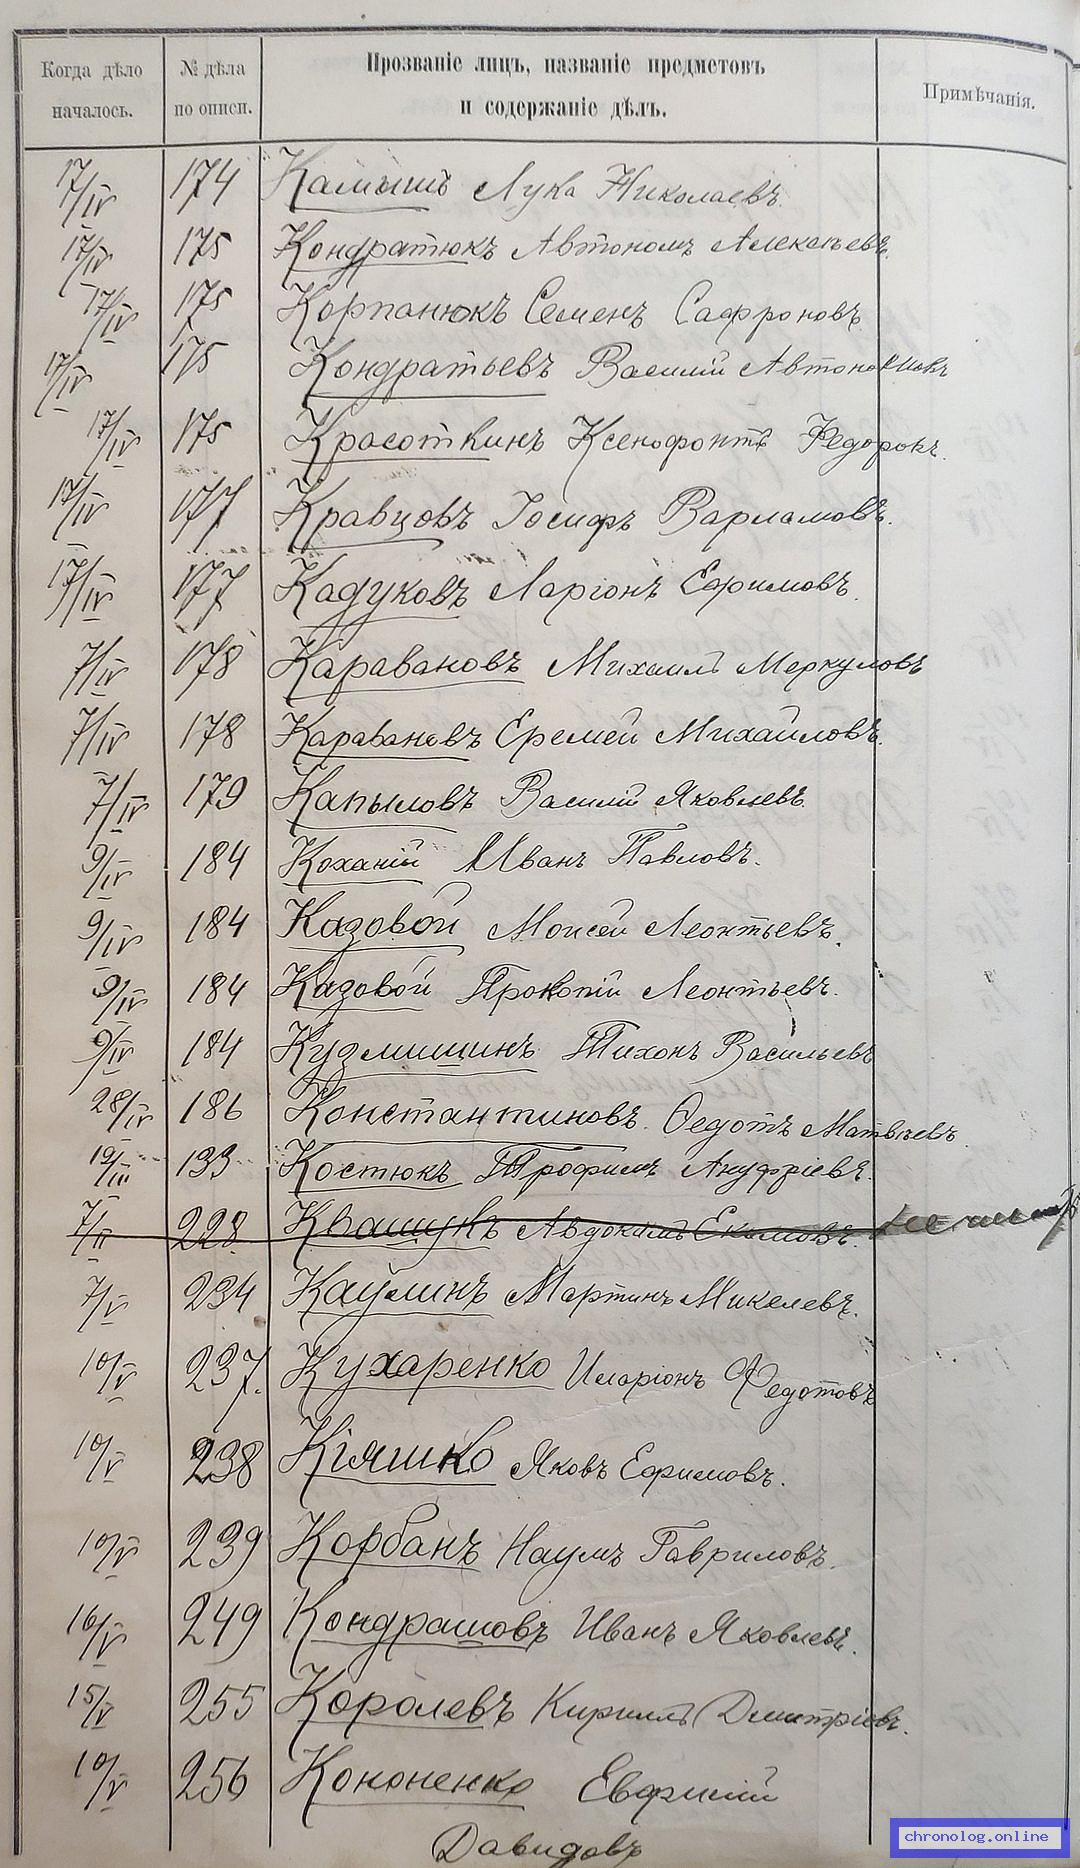 Когда дѣло началось. № дѣла по описи. Прозваніе лицъ, названіе предметовъ и содержаніе дѣлъ. Примѣчанія.
17/IV 174 Камышъ Лука Николаевъ.
17/IV 175 Кондратюкъ Автономъ Алексѣевъ.
17/IV 175 Корпанюкъ Семенъ Сафроновъ
17/IV 175 Кондратьевъ Василій Автономовъ
17/IV 175 Красоткинъ Ксенофонтъ Федоровъ.
17/IV 177 Кравцовъ Іосифъ Варламовъ.
17/IV 177 Кадуковъ Ларіонъ Ефимовъ.
7/IV 178 Каравановъ Михаилъ Меркуловъ
7/IV 178 Каравановъ Еремей Михайловъ.
7/IV 179 Капыловъ Василій Яковлевъ.
9/IV 184 Коханій Иванъ Павловъ.
9/IV 184 Казовой Моисей Леонтьевъ.
9/IV 184 Казовой Прокопій Леонтьевъ.
9/IV 184 Кузмишинъ Тихонъ Васильевъ
28/IV 186 Константиновъ. Ѳедотъ Матвѣевъ.
19/III 133 Костюкъ Трофимъ Ануфріевъ.
7/II 228. Квашукъ Авдокимъ Екимовъ.
7/V 234 Каулинъ Мартинъ Микелевъ.
10/V 237. Кухаренко Иларіонъ Федотовъ
10/V 238 Кіяшко Яковъ Ефимовъ.
10/V 239 Корбанъ Наумъ Гавриловъ.
16/V 249 Кондрашовъ Иванъ Яковлевъ.
15/V 255 Королевъ Кириллъ Дмитріевъ.
10/V 256 Кононенко Евфимій
Давидовъ
chronolog.online